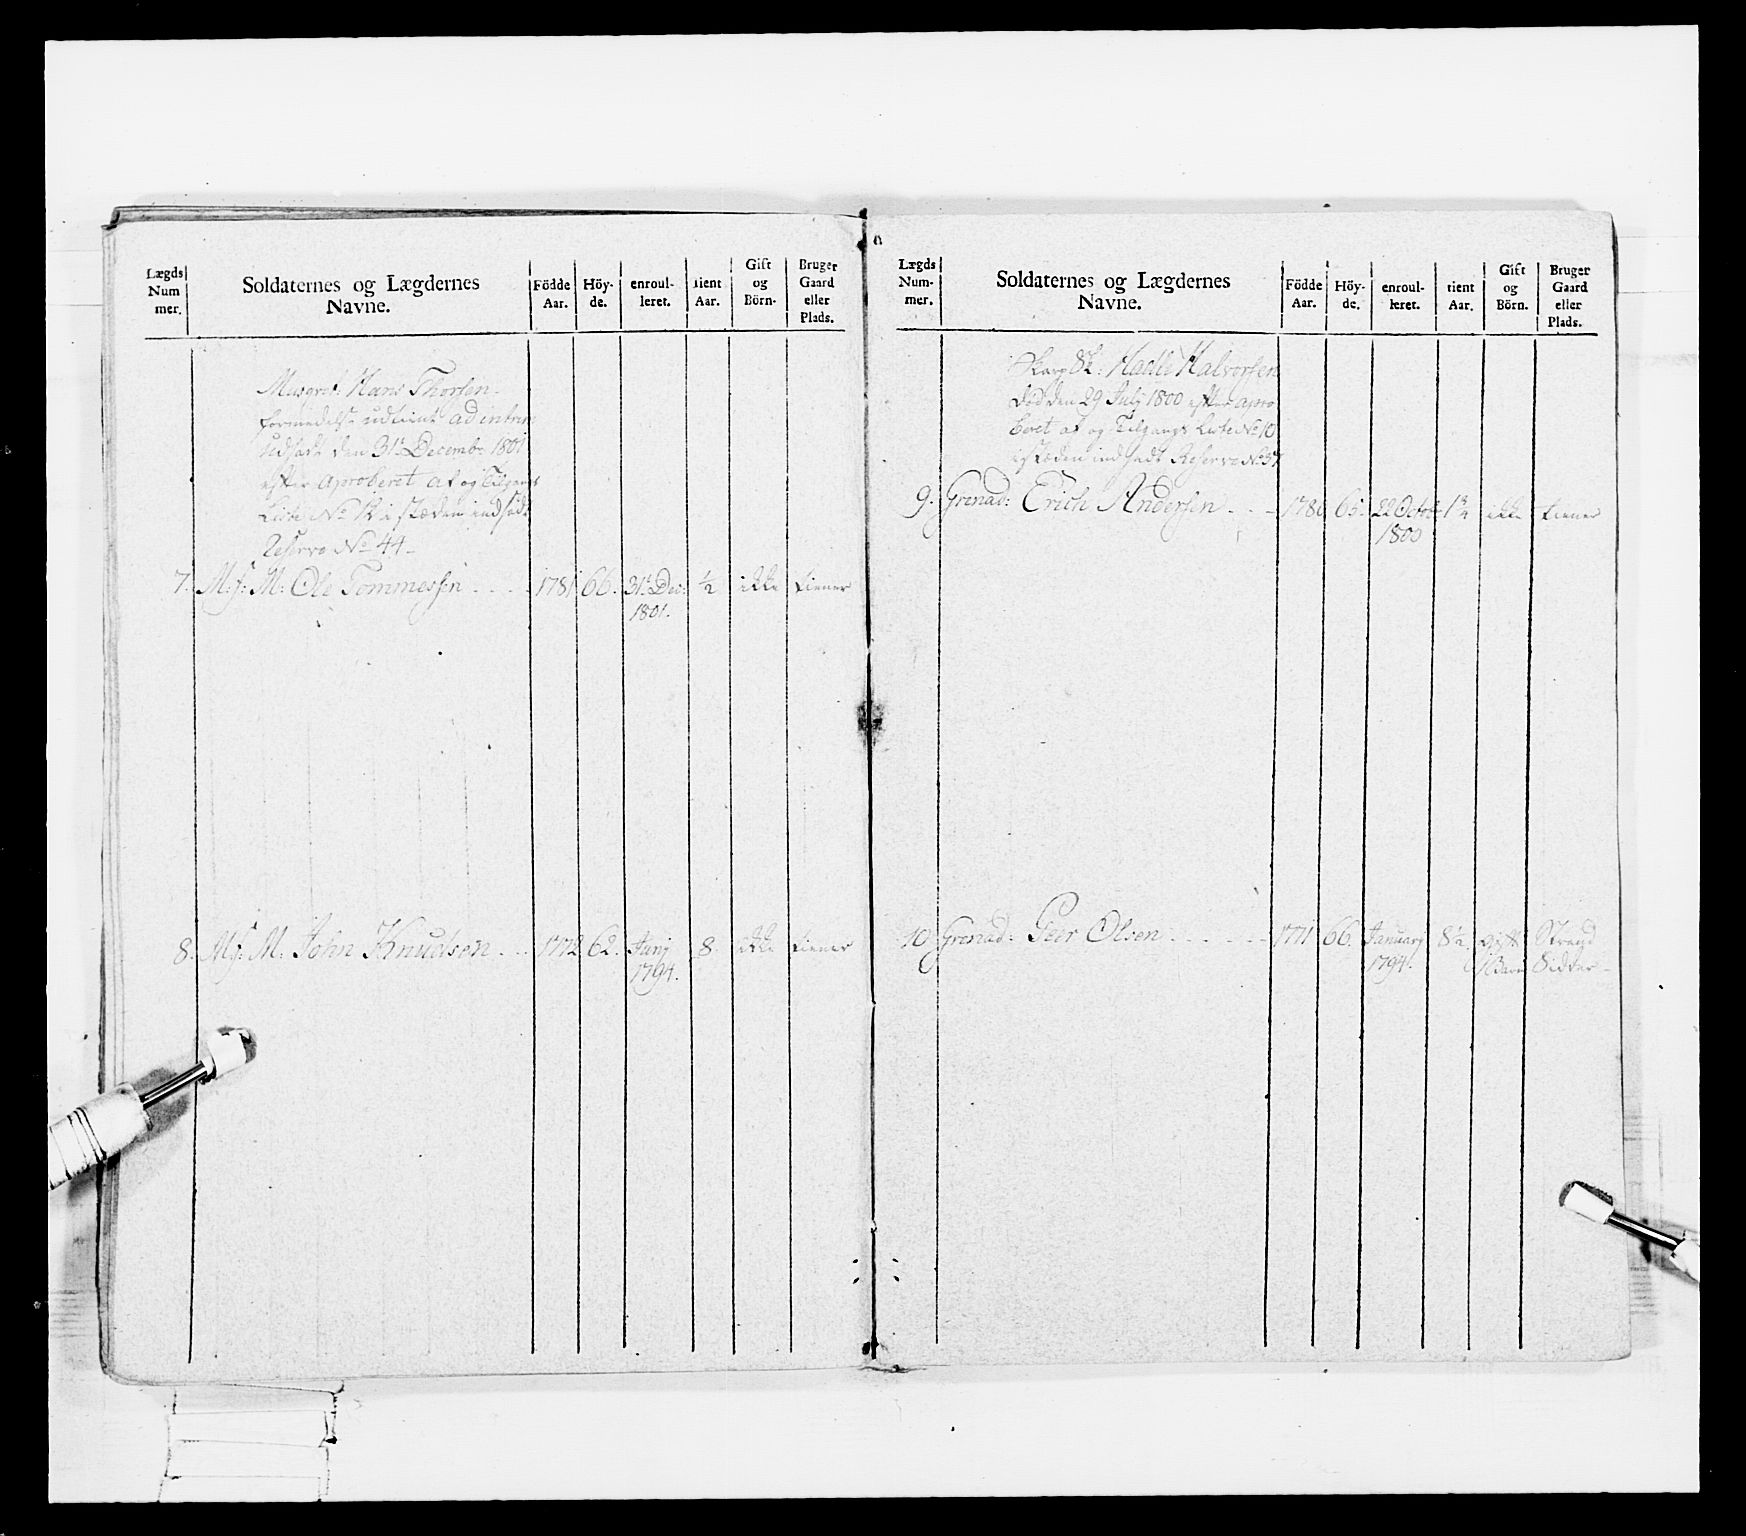 Lægds Num mer.
Soldaternes og Lægdernes Navne.
Födde Aar.
Höy- de.
enroul- leret.
tient Aar.
Gift og Börn.
Bruger Gaard eller Plads.
Musqret: Hans Thorsen
formedelst udtient ad intrim
udsadt den 31t Decembr 1801
efter aproberet af og Tilgangs
Liste No 12 i stæden indsadt
Reserve No 44
7. M: M: Ole Tommessen 1781 66. 31t Dec: ½ ikke tiener
1801.
8. M: M: John Knudsen 1772 62. Junj 8. ikke tiener
1794.
Lægds Num- mer.
Soldaternes og Lægdernes Navne.
Födde Aar.
Höy- de.
enroul- leret.
tient Aar.
Gift og Börn.
Bruger Gaard eller Plads.
Skarp Halvorsen
död den 29 July 1800 efter apro
beret af og Tilgangs Liste No 10
i stæden indsadt Reserve No 37
9. Grenad: Erich Andersen 65. 22 Octob: ikke tiener
1800
10 Grenad: Peer Olsen 1771 66. Januarj 8½ gift Strand
1794. 1 Barn Sidder